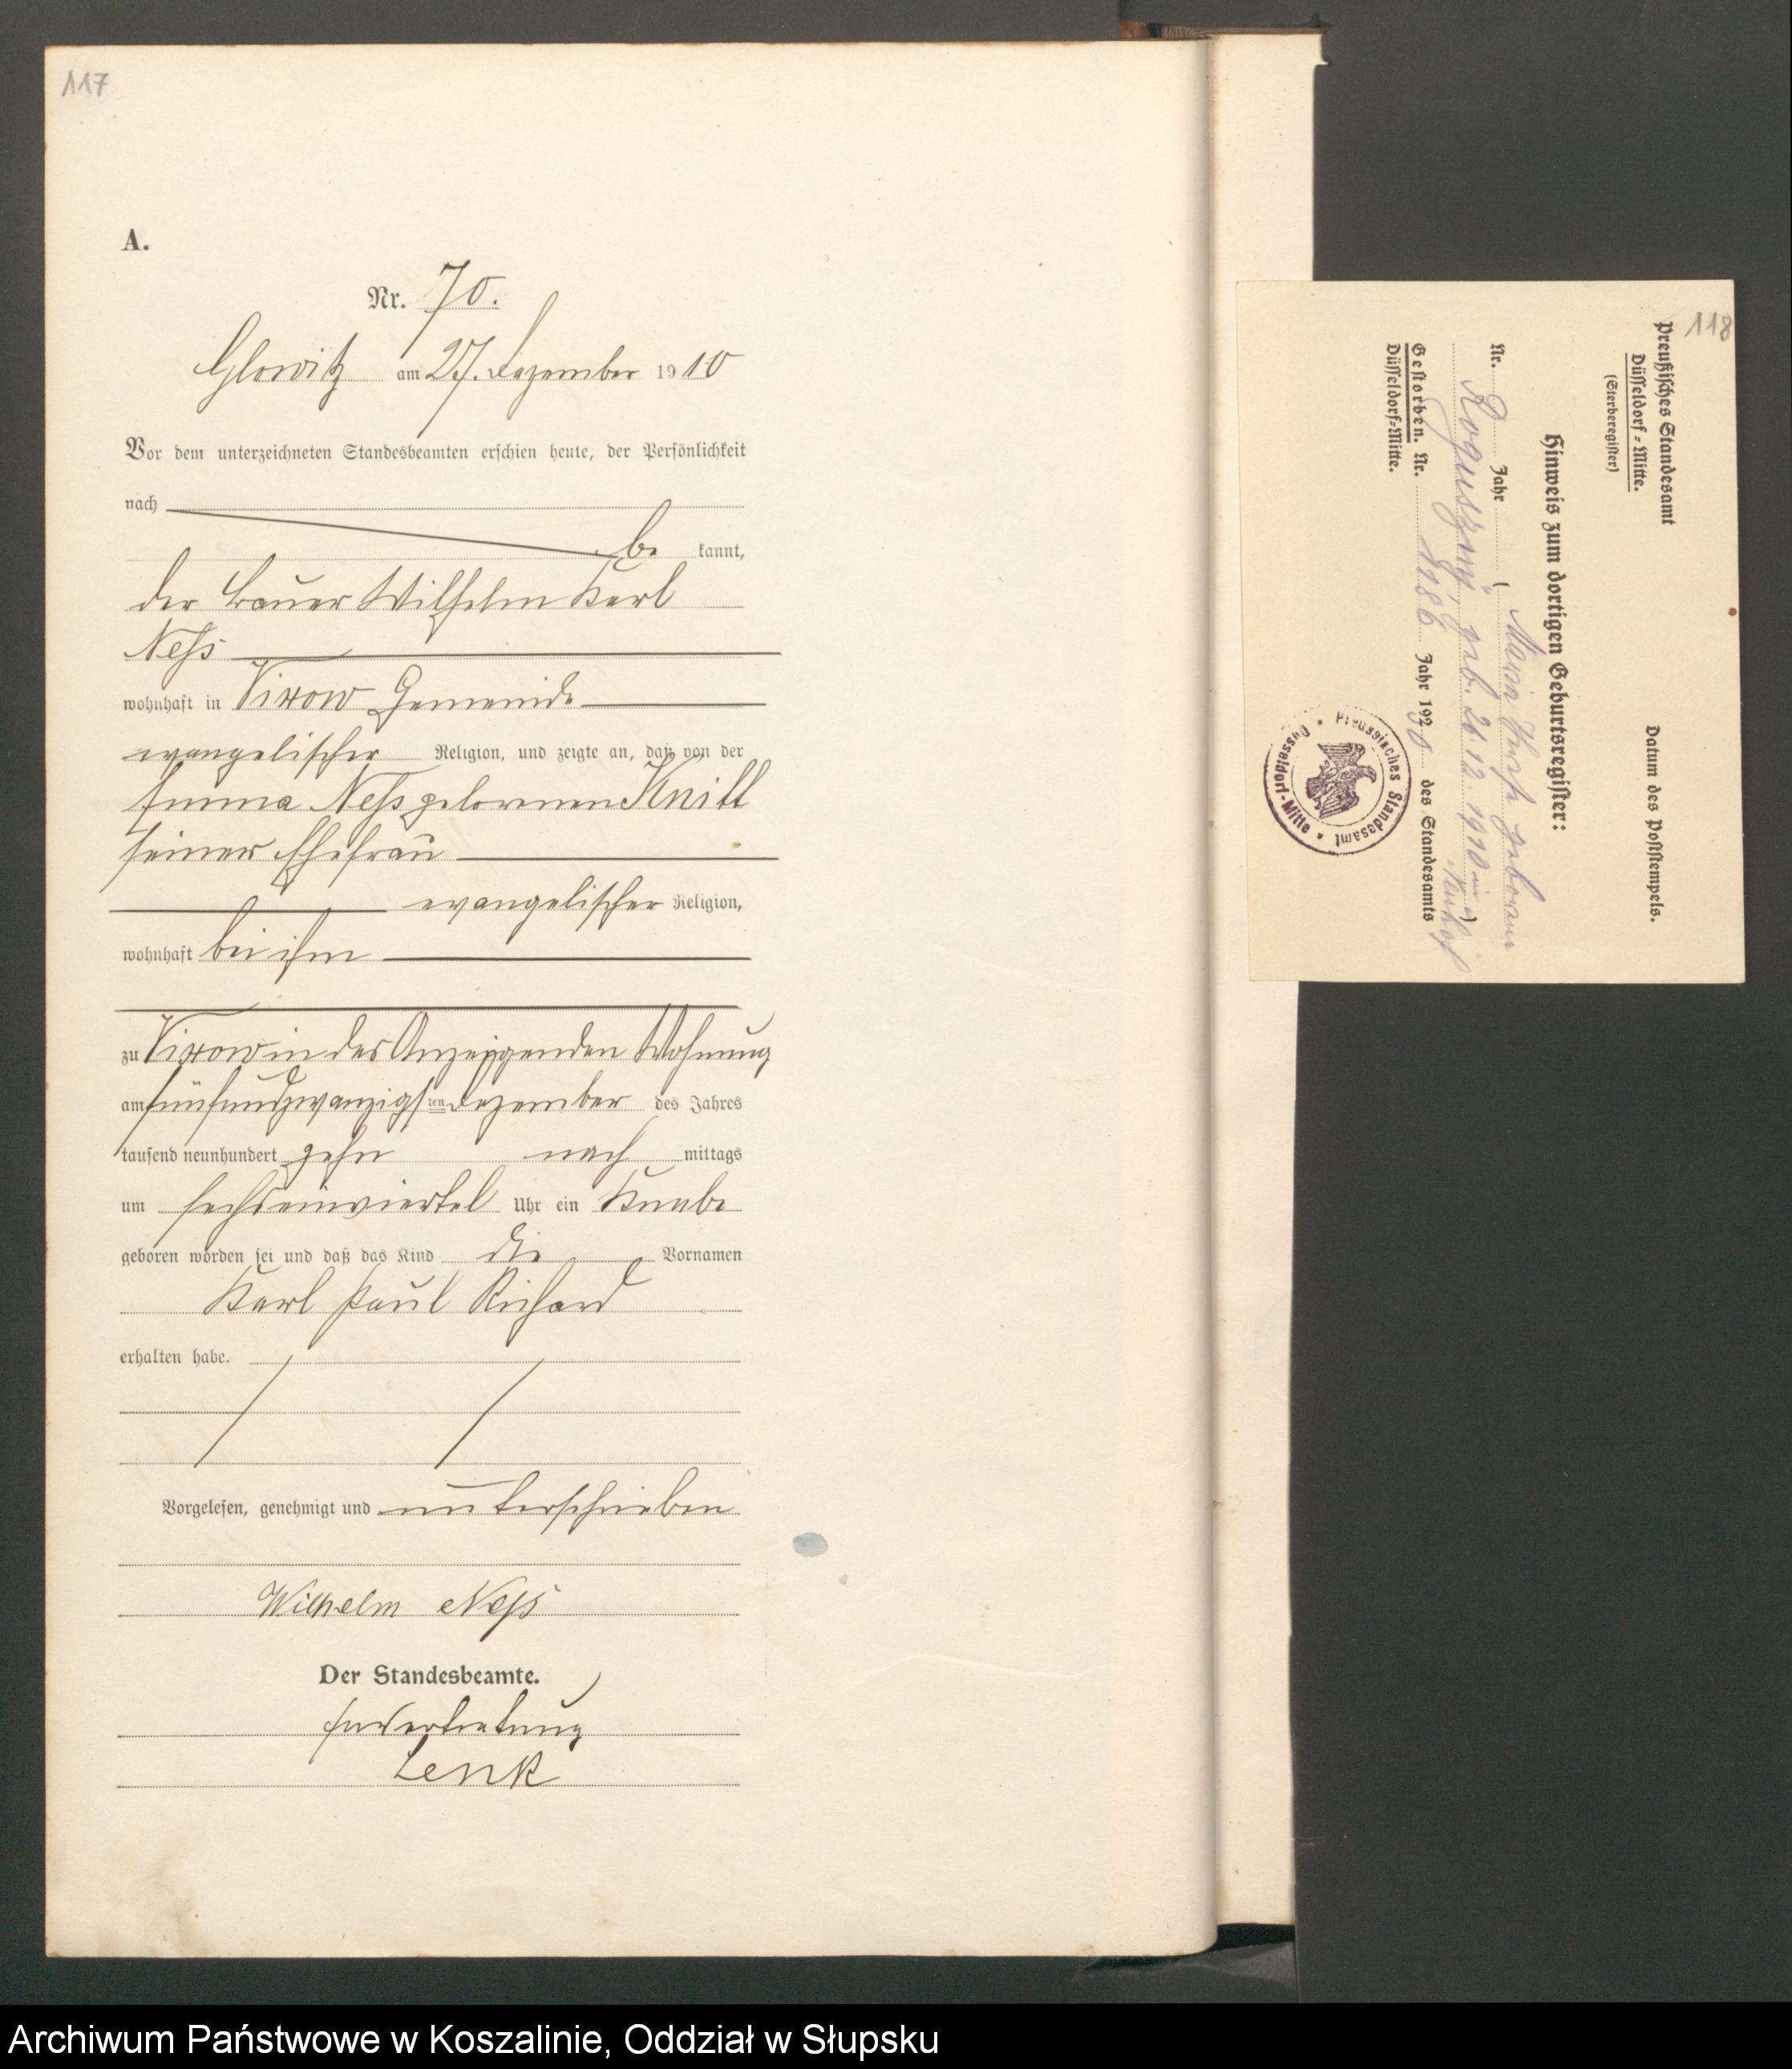 117
A.
Nr. 70.
Glowitz am 27. Dezember 1910
Vor dem unterzeichneten Standesbeamten erschien heute, der Persönlichkeit
nach
be kannt,
der Bauer Wilhelm Karl
Neß
wohnhaft in Vixow Gemeinde
evangelischer Religion, und zeigte an, daß von der
Emma Neß geborenen Knitt
seiner Ehefrau
evangelischer Religion,
wohnhaft bei ihm
zu Vixow in des Anzeigenden Wohnung
am fünfundzwanzigsten Dezember des Jahres
tausend neunhundert zehn nach mittags
um sechseinviertel Uhr ein Knabe
geboren worden sei und daß das Kind die Vornamen
Karl Paul Richard
erhalten habe.
Vorgelesen, genehmigt und unterschrieben
Wilhelm Neß
Der Standesbeamte.
In Vertretung
Lenk
118
Preußisches Standesamt
Düsseldorf-Mitte.
(Sterberegister)
Datum des Poststempels.
Hinweis zum dortigen Geburtsregister:
Nr. Jahr ( Maria geborene
geb. 26.12.1910 in
Gestorben. Nr. Jahr 192 des Standesamts
Düsseldorf-Mitte.
Preussisches Standesamt
Düsseldorf-Mitte
Archiwum Państwowe w Koszalinie, Oddział w Słupsku